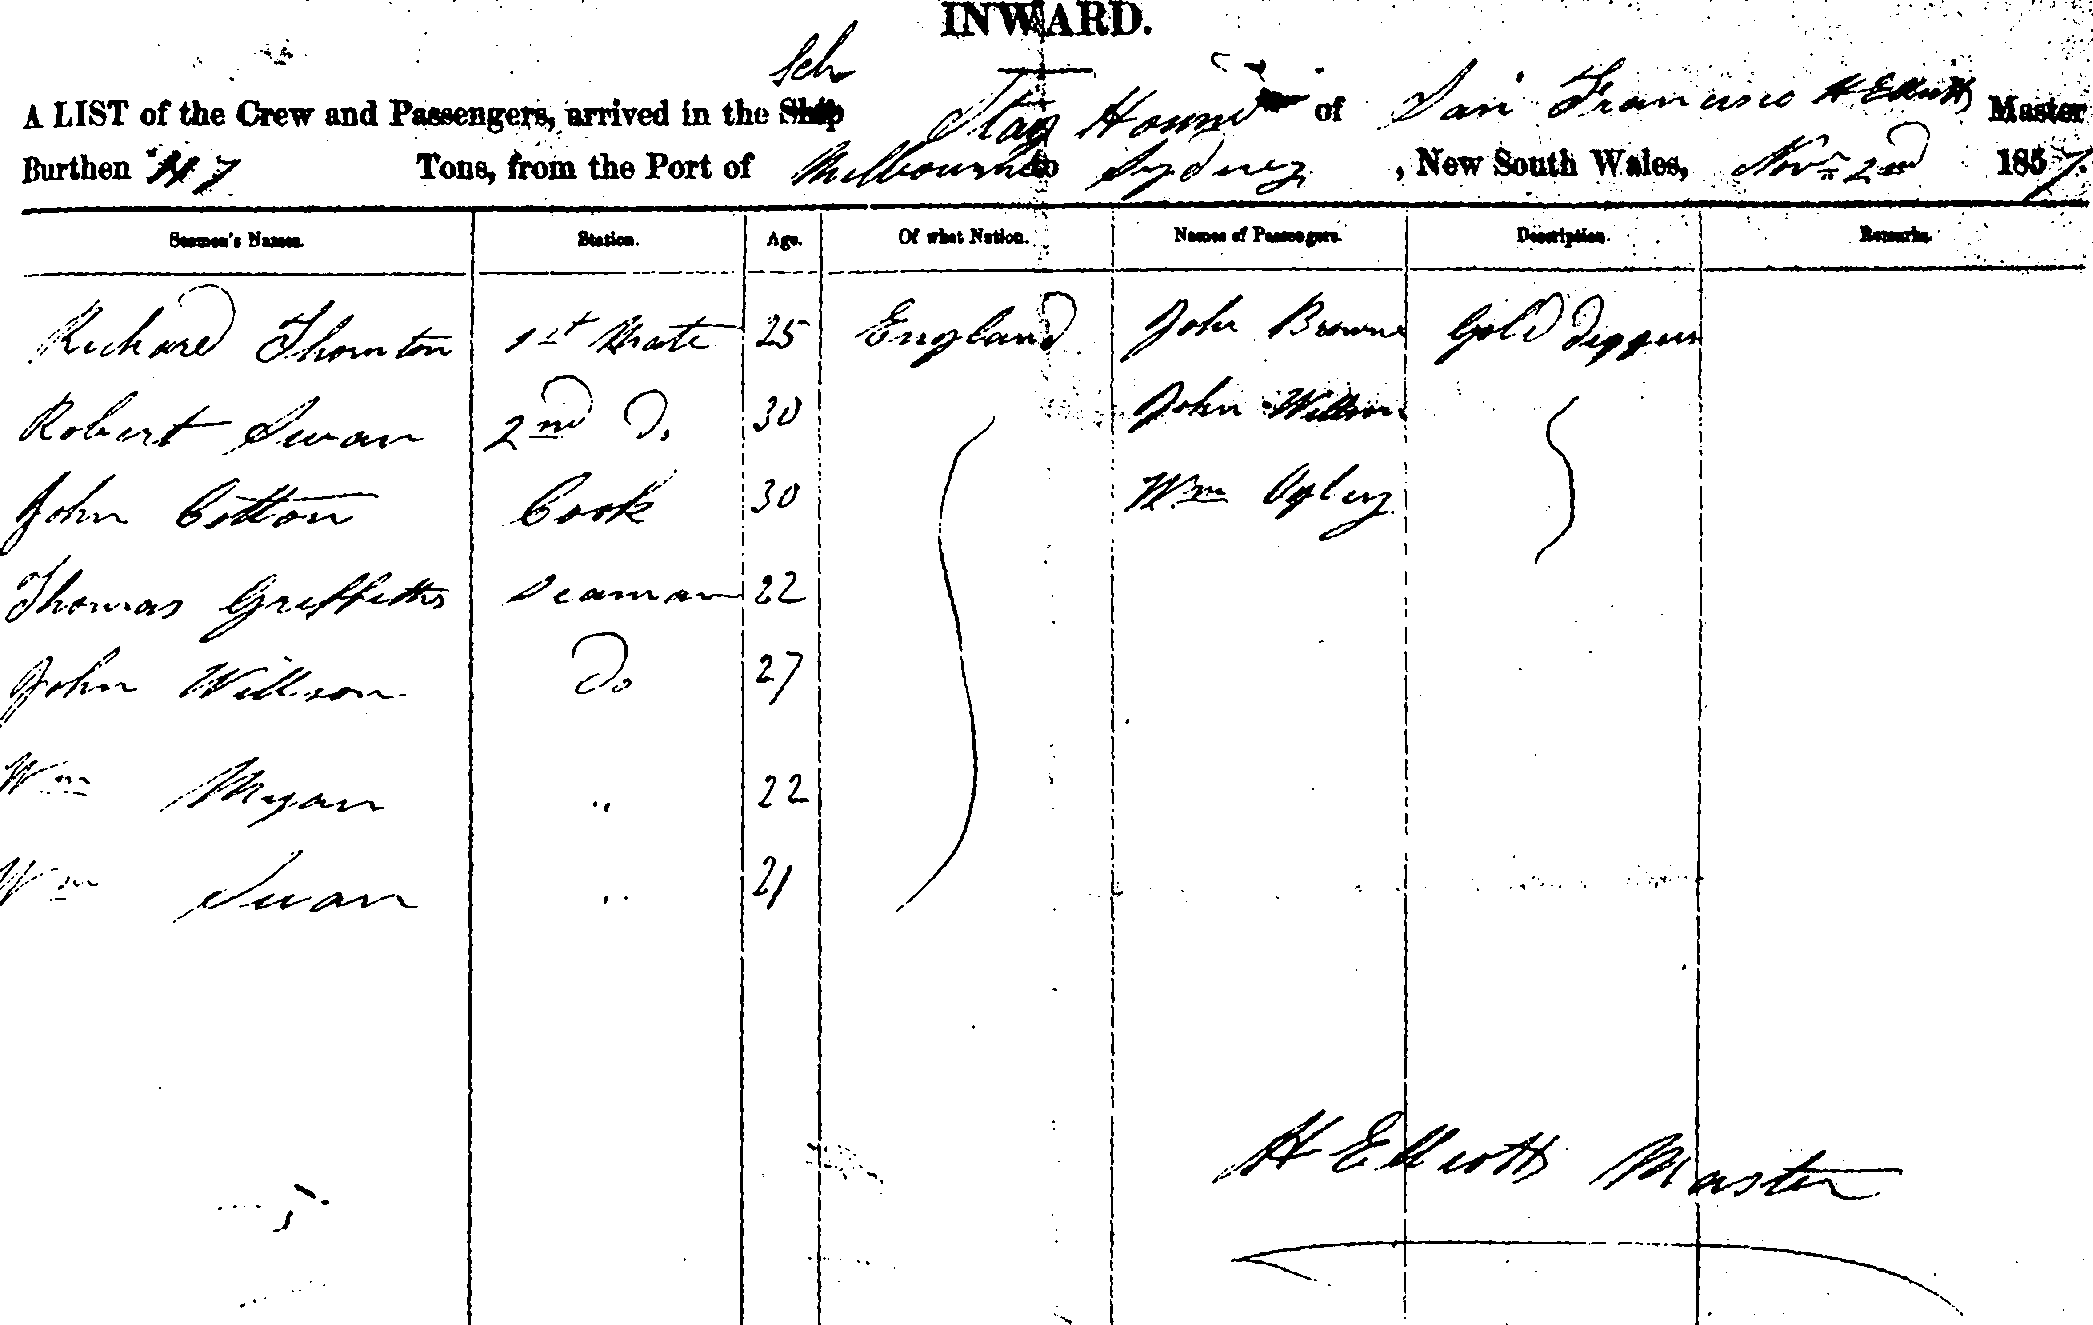 INWARD.
Sch
A LIST of the Crew and Passengers, arrived in the Ship Stag Hound of San Francisco H Elliott Master
Burthen 117 Tons, from the Port of Melbourne to Sydney, New South Wales, Novr 2nd 1857.
Seamen's Names. Station. Age. Of what Nation. Names of Passengers. Description. Remarks.
Richard Thornton 1st Mate 25 England John Browne Gold diggers
Robert Swan 2nd Do. 30 John Willson
John Cotton Cook 30 Wm Ogley
Thomas Griffiths Seaman 22
John Willson Do 27
Wm Myan " 22
Wm Swan " 21
H Elliott Master